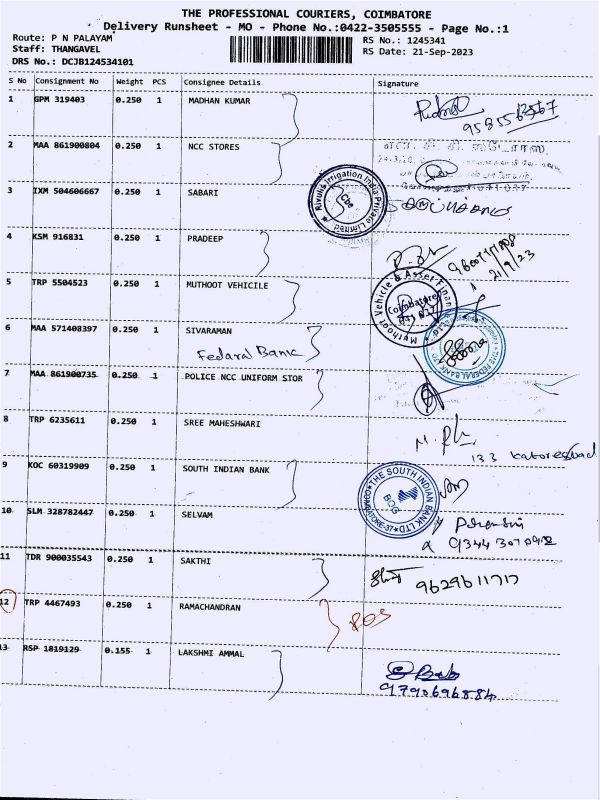 THE PROFESSIONAL COURIERS, COIMBATORE
Delivery Runsheet - MO - Phone No.:0422-3505555 - Page No.:1
Route: P N PALAYAM
Staff: THANGAVEL
DRS No.: DCJB124534101
RS No.: 1245341
RS Date: 21-Sep-2023
S No Consignment No Weight PCS Consignee Details Signature
1 GPM 319403 0.250 1 MADHAN KUMAR
2 MAA 861900804 0.250 1 NCC STORES
3 IXM 504606667 0.250 1 SABARI
Rivulis Irrigation India Private Limited
Cbe
4 KSM 916831 0.250 1 PRADEEP
21/9/23
5 TRP 5504523 0.250 1 MUTHOOT VEHICILE
Muthoot Vehicle & Asset Finance Ltd
Coimbatore
6 MAA 571408397 0.250 1 SIVARAMAN
Fedaral Bank
THE FEDERAL BANK LTD
7 MAA 861900735 0.250 1 POLICE NCC UNIFORM STOR
8 TRP 6235611 0.250 1 SREE MAHESHWARI
133
9 KOC 60319909 0.250 1 SOUTH INDIAN BANK
THE SOUTH INDIAN BANK LTD
COIMBATORE-37
10 SLM 328782447 0.250 1 SELVAM
11 TDR 900035543 0.250 1 SAKTHI
9629611717
12 TRP 4467493 0.250 1 RAMACHANDRAN
13 RSP 1819129 0.155 1 LAKSHMI AMMAL
9790696884